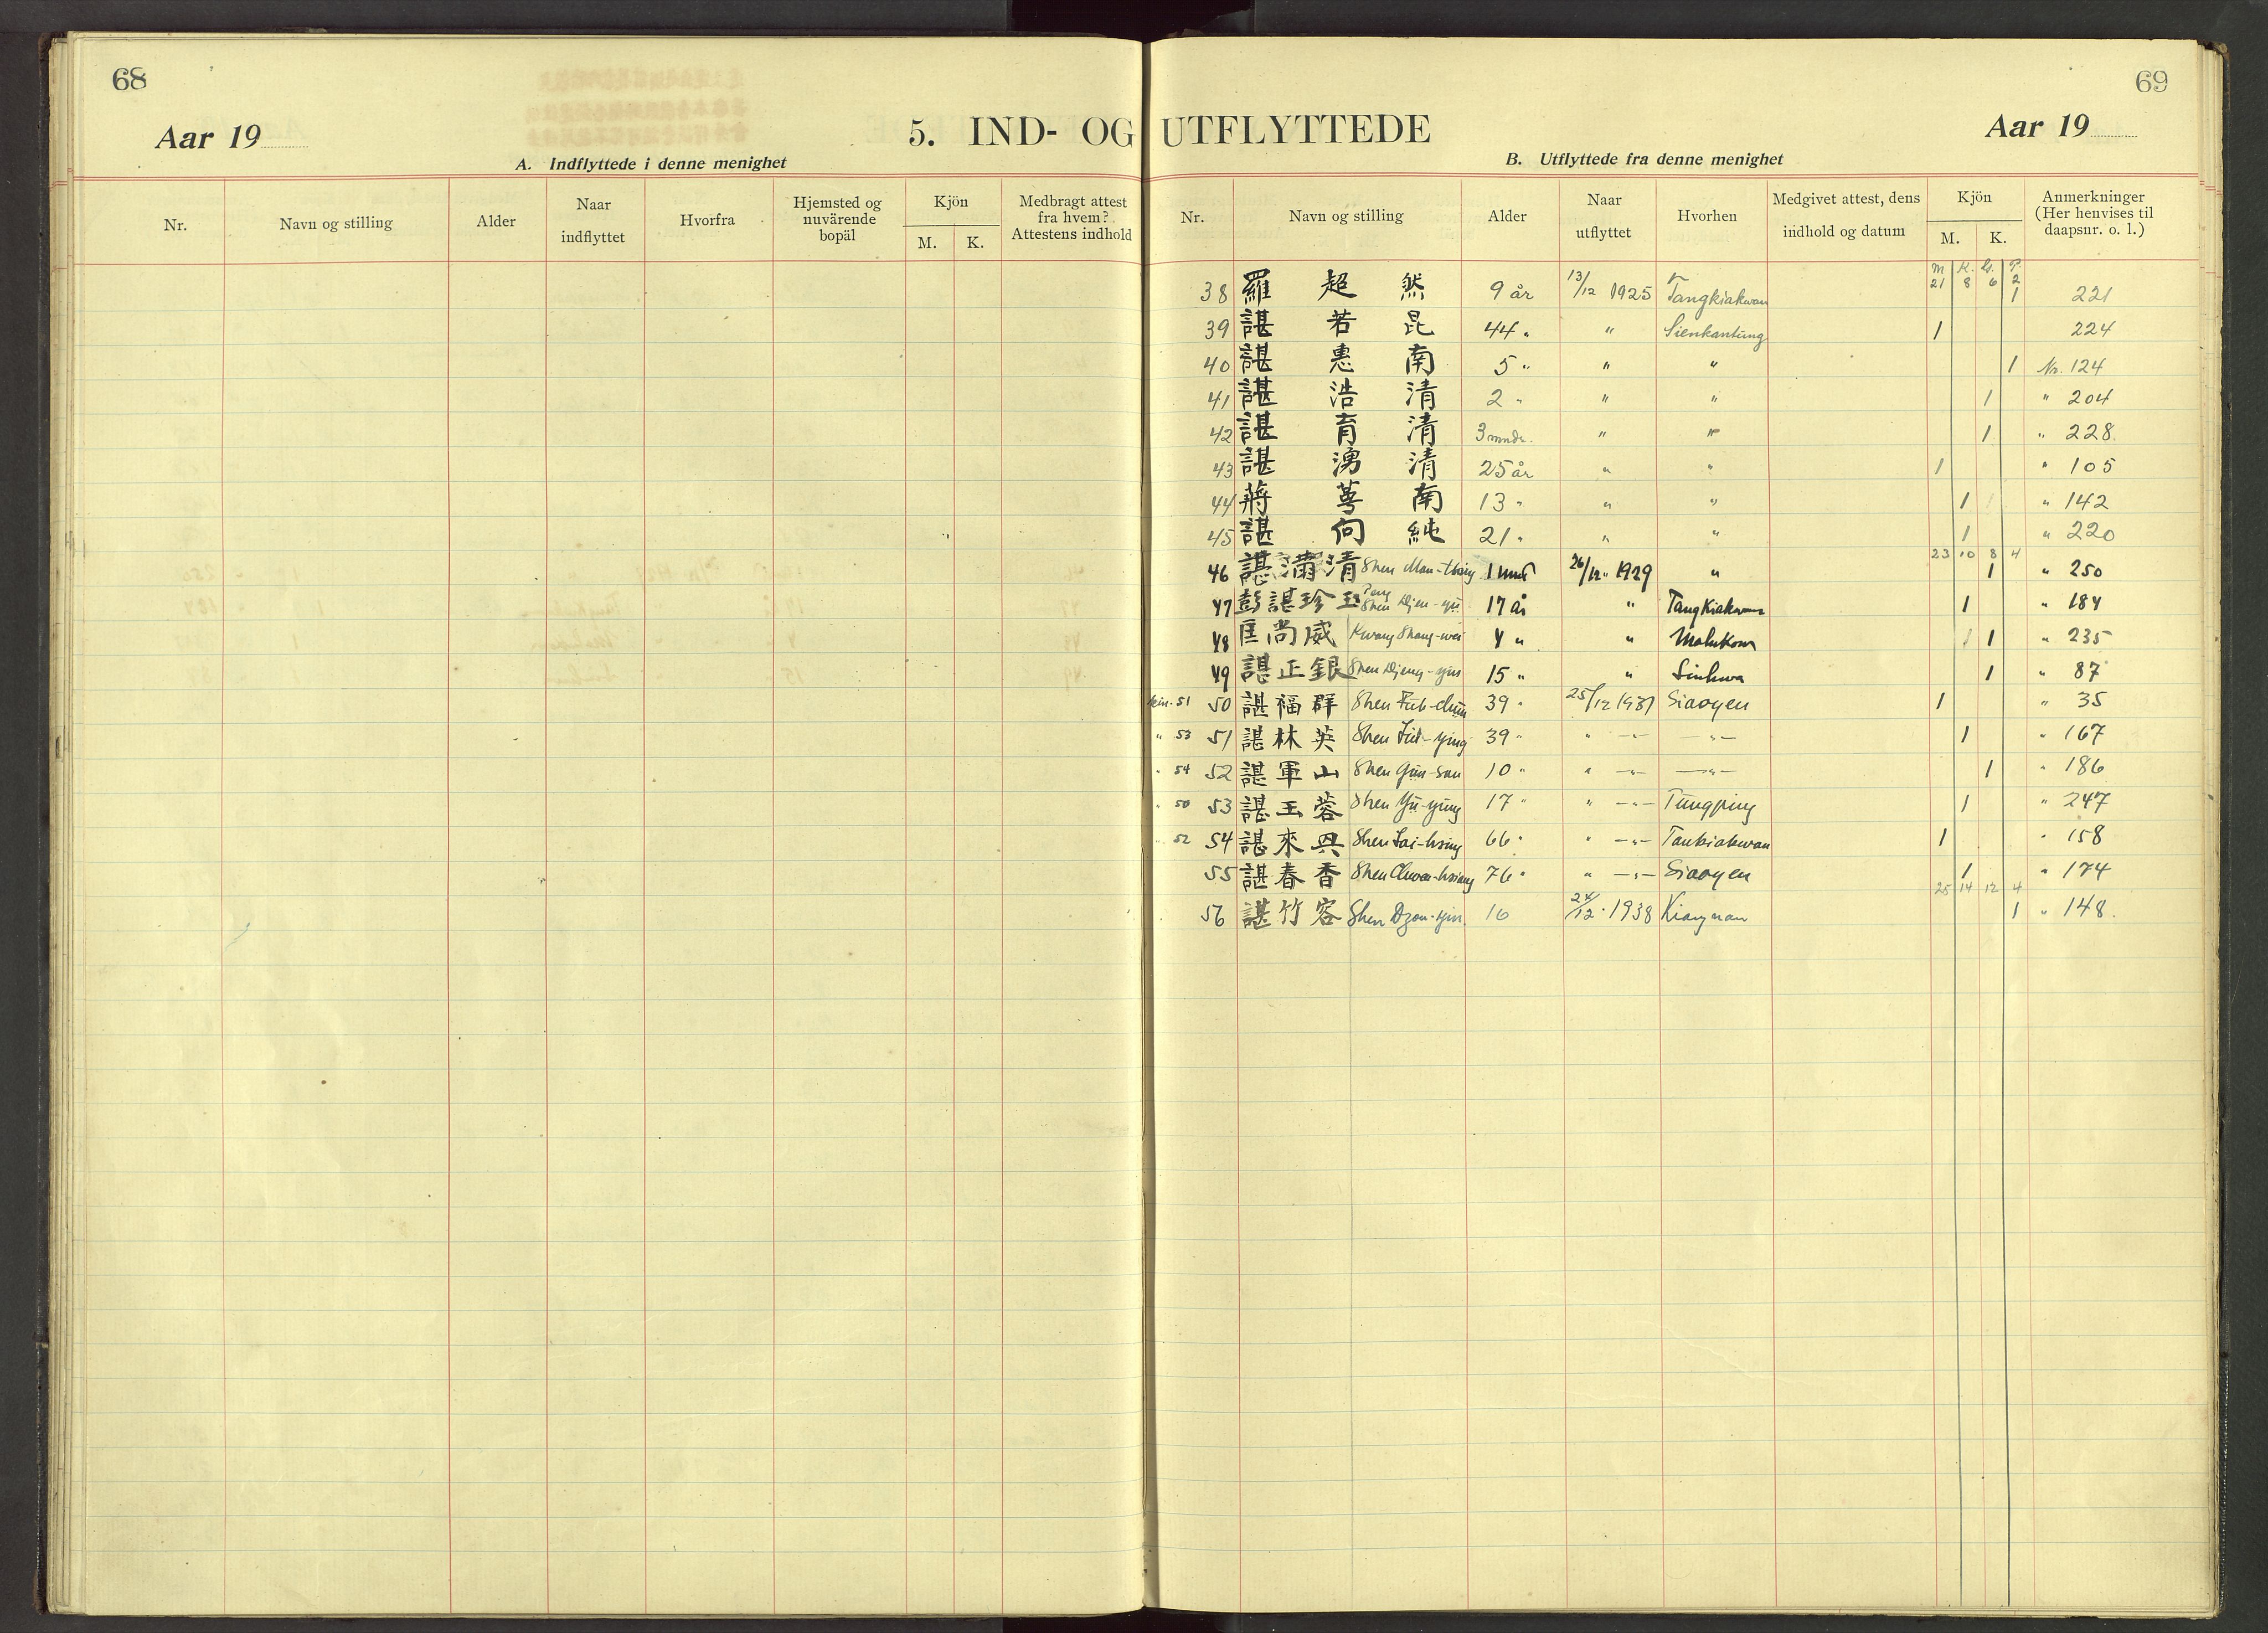 68
Aar 19
5. IND- OG UTFLYTTEDE
A. Indflyttede i denne menighet
Nr. Navn og stilling Alder Naar indflyttet Hvorfra Hjemsted og nuværende bopäl Kjön M. K. Medbragt attest fra hvem? Attestens indhold
69
Aar 19
B. Utflyttede fra denne menighet
Nr. Navn og stilling Alder Naar utflyttet Hvorhen Medgivet attest, dens indhold og datum Kjön M. K. Anmerkninger (Her henvises til daapsnr. o. l.)
M K. G. P.
21 8 6 2
38 羅超然 9 år 13/12 1925 Tangkiakwan 1 221
39 諶若昆 44 " " Sienkantung 1 224
40 諶惠南 5 " " " 1 Nr. 124
41 諶浩清 2 " " " 1 " 204
42 諶育清 3 mndr. " " 1 " 228.
43 諶湧清 25 år " " 1 " 105
44 蔣萼南 13 " " " 1 " 142
45 諶向純 21 " " " 1 " 220
23 10 8 4
46 諶滿清 Shen Man-tsing 1 mnd " 26/12 1929 " 1 " 250
47 彭諶珍玉 Peng Shen Djen-yü 17 år " Tangkiakwan 1 " 184
48 匡尚威 Kwang Shang-wei 4 " " Malukow 1 " 235
49 諶正銀 Shen Djeng-yin 15 " " Sinhwa 1 " 87
51 50 諶福群 Shen Fuh-chün 39 " 25/12 1931 Siaoyen 1 " 35
" 53 51 諶林英 Shen ying 39 " " — " — — " — 1 " 167
" 54 52 諶軍山 Shen Gün-san 10 " " — " — — " — 1 " 186
" 50 53 諶玉蓉 Shen Yü-yung 17 " " — " — Tungping 1 " 247
" 52 54 諶來興 Shen Lai-hsing 66 " " — " — Tankiakwan 1 " 158
55 諶春香 Shen Chwen-hsiang 76 " " — " — Siaoyen 1 " 174
25 14 12 4
56 諶竹容 Shen Dzou-yin 16 24/12 1938 Kiangnan 1 " 148.